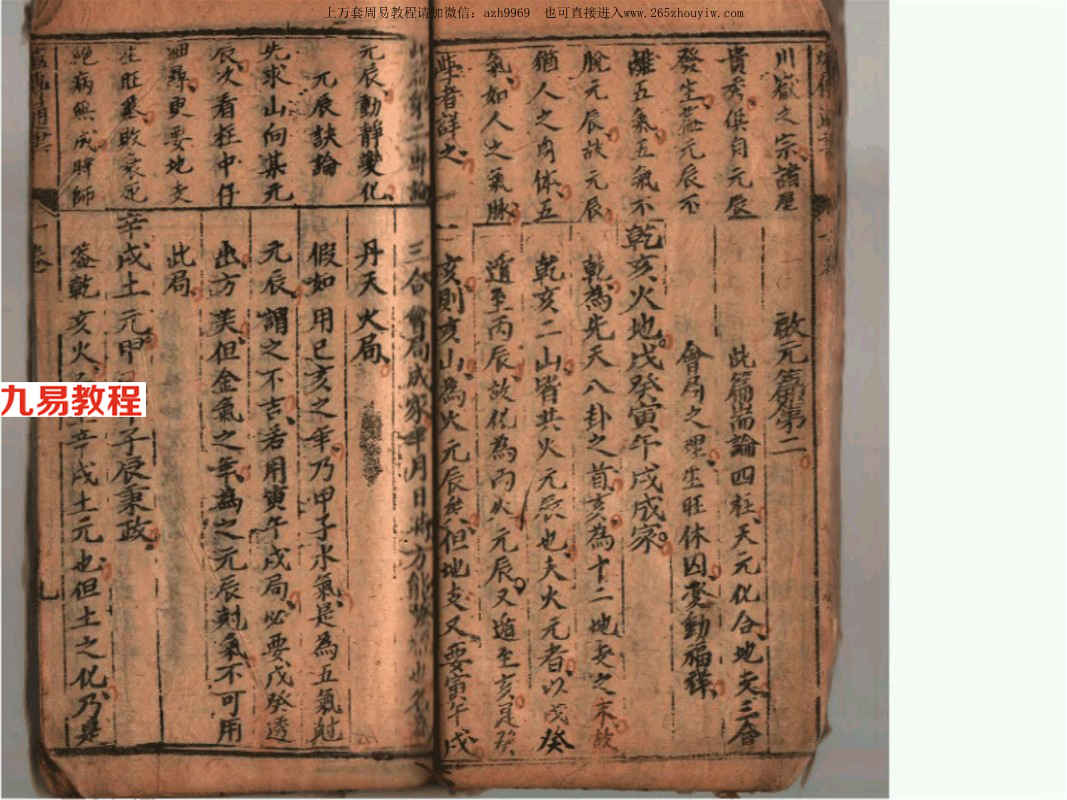 上万套周易教程请加微信：azh9969　也可直接进入www.265zhouyiw.com
九易教程
川嶽之宗諸星
貴秀俱自元辰
發生蓋元辰不
離五氣五氣不
脫元辰故元辰
猶人之肉体五
氣如人之氣脉
學者詳之
啟元篇第二
此篇耑論四柱天元化合地支三會
會局之理生旺休囚變動福祥
乾亥火地戊癸寅午戌成家
乾為先天八卦之首亥為十二地支之末故
乾亥二山皆共火元辰也夫火元者以戊癸
遁至丙辰故化為丙火元辰又遁至亥是癸
亥則亥山為火元辰矣但地支又要寅午戌
元辰動靜變化
元辰訣論
先求山向某元
辰次看柱中仔
細尋更要地支
生旺墓敗衰死
絕病無成歸師
三合會局成家年月日時方能
丹天火局
假如用已亥之年乃甲子水氣是為五氣尅
元辰謂之不吉若用寅午戌局必要戊癸透
出方美但金氣之年為之元辰剋氣不可用
此局
辛戌土元甲 子辰秉政
蓋乾亥火 辛戌土元也但土之化乃是